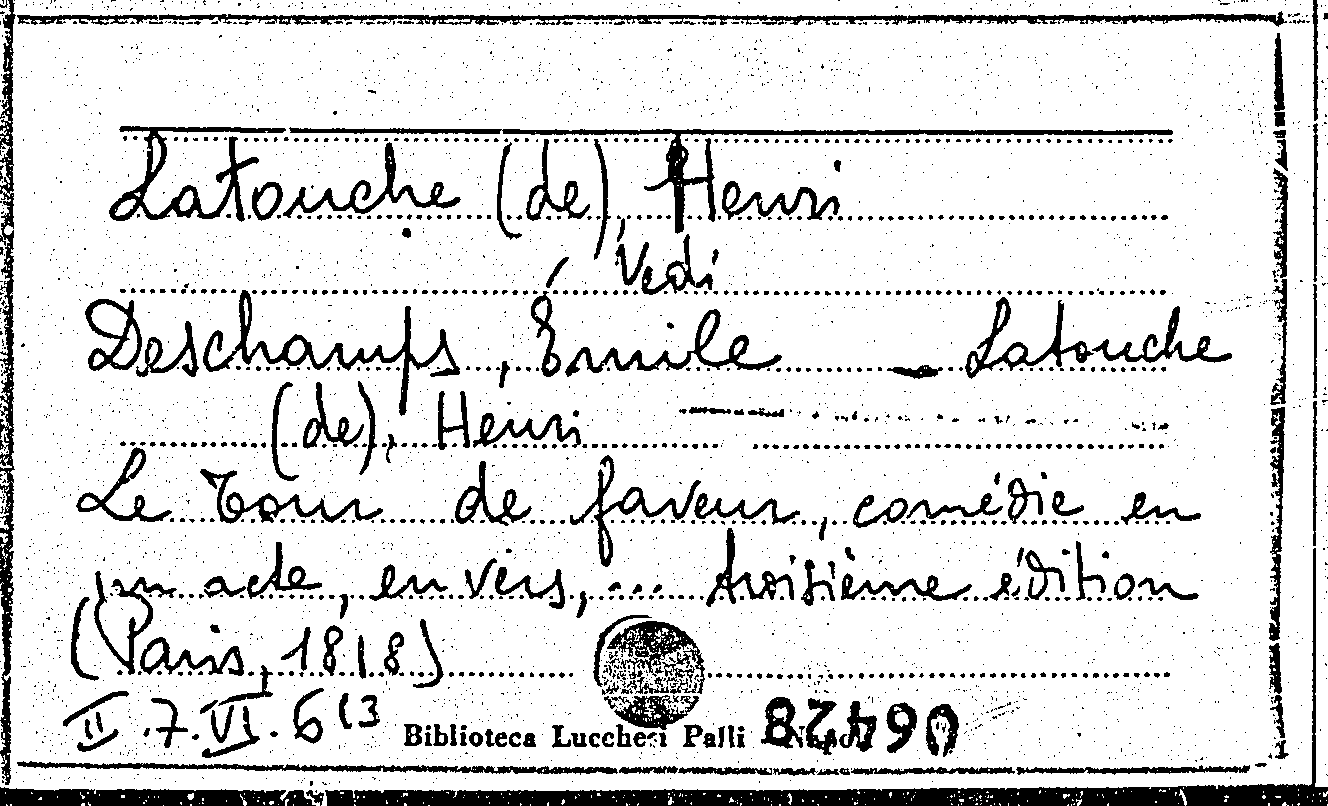 Latouche (de), Henri
Vedi
Deschamps, Émile - Latouche
(de), Henri
Le Tour de faveur, comédie en
un acte, en vers, ... troisième édition
(Paris, 1818)
II.7.VI.6(3
Biblioteca Lucchesi Palli - Napoli
06428